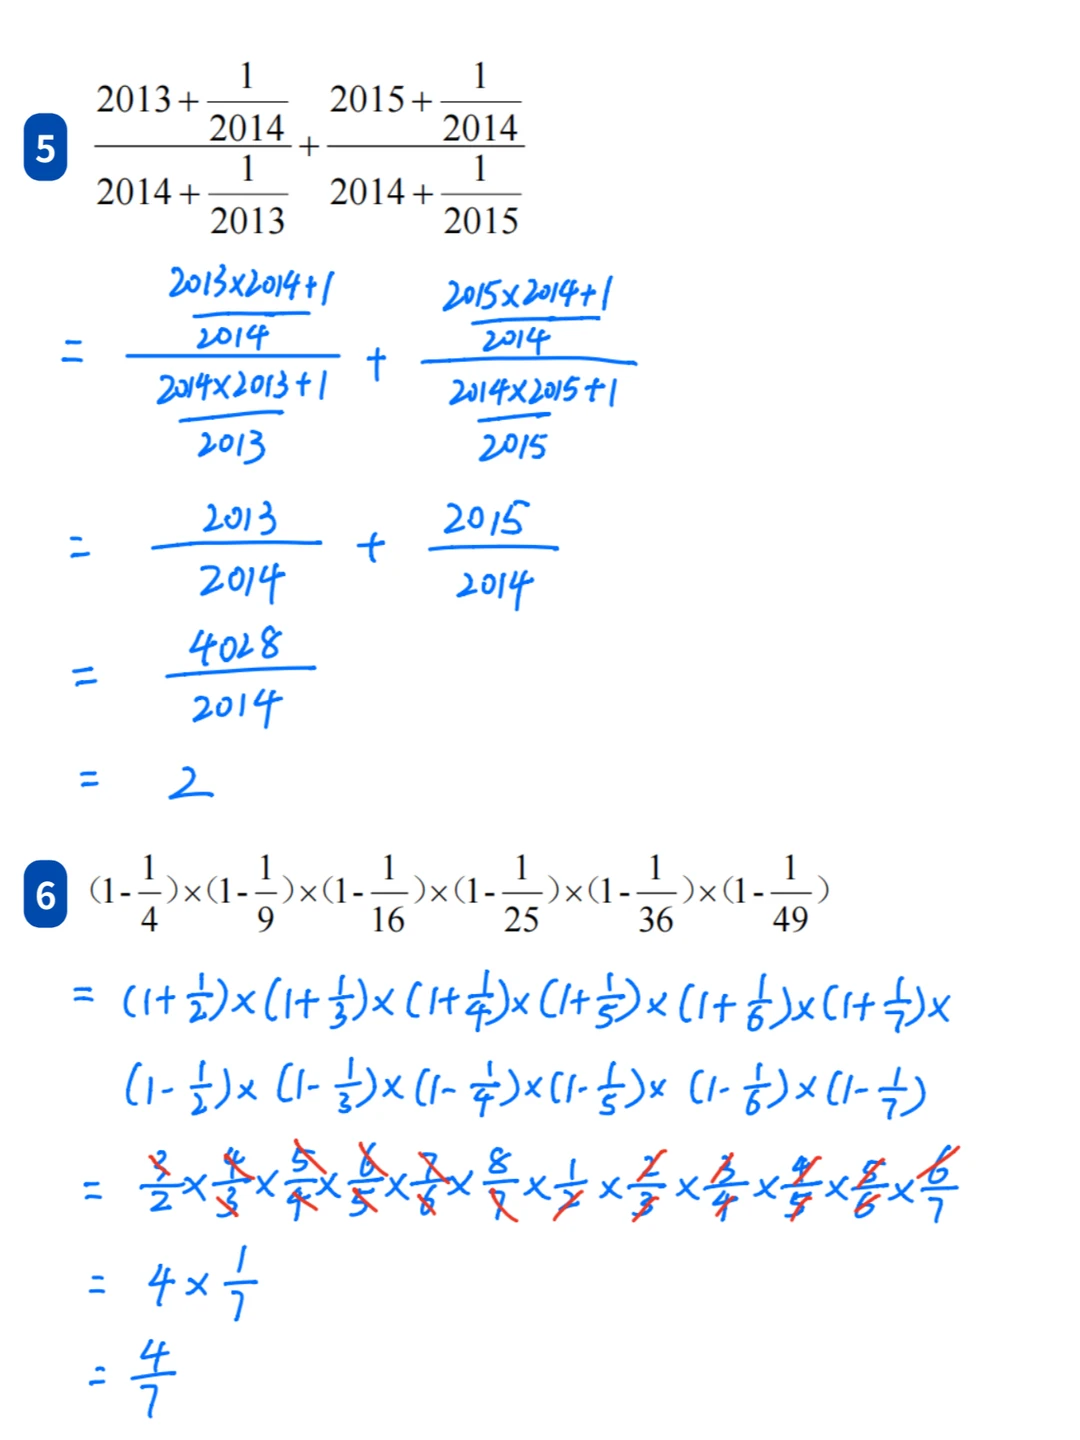 5 (2013+1/2014)/(2014+1/2013) + (2015+1/2014)/(2014+1/2015)
= ((2013×2014+1)/2014)/((2014×2013+1)/2013) + ((2015×2014+1)/2014)/((2014×2015+1)/2015)
= 2013/2014 + 2015/2014
= 4028/2014
= 2
6 (1-1/4)×(1-1/9)×(1-1/16)×(1-1/25)×(1-1/36)×(1-1/49)
= (1+1/2)×(1+1/3)×(1+1/4)×(1+1/5)×(1+1/6)×(1+1/7)×
(1-1/2)×(1-1/3)×(1-1/4)×(1-1/5)×(1-1/6)×(1-1/7)
= 3/2×4/3×5/4×6/5×7/6×8/7×1/2×2/3×3/4×4/5×5/6×6/7
= 4×1/7
= 4/7